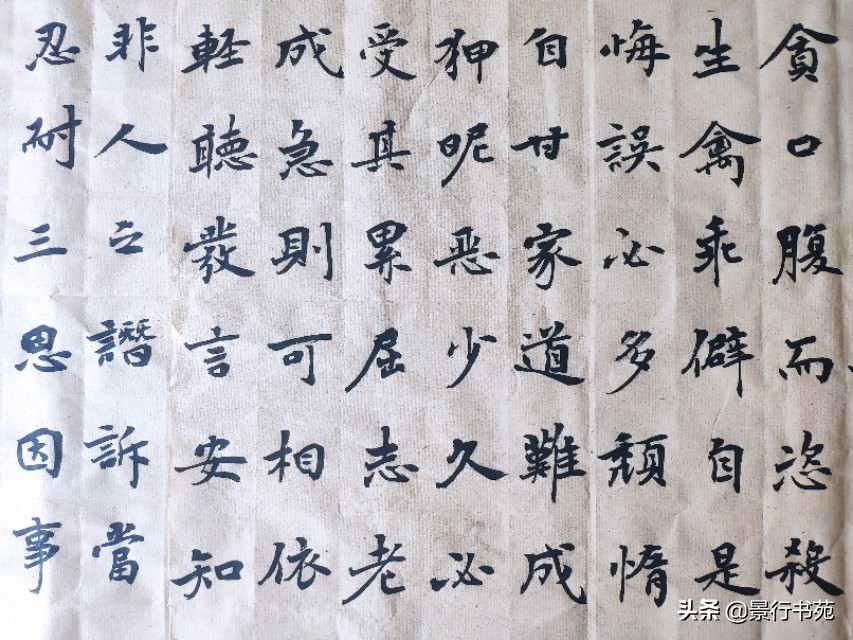 貪口腹而恣殺
生禽乖僻自是
悔誤必多頽惰
自甘家道難成
狎昵恶少久必
受其累屈志老
成急則可相依
軽聽發言安知
非人之譖訴當
忍耐三思因事
头条 @景行书苑